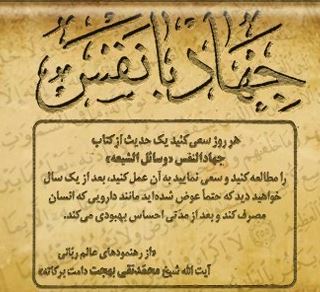 جهاد با نفس
هر روز سعی کنید یک حدیث از کتاب
جهاد النفس «وسائل الشیعه»
را مطالعه کنید و سعی نمایید به آن عمل کنید، بعد از یک سال
خواهید دید که حتماً عوض شده‌اید مانند دارویی که انسان
مصرف کند و بعد از مدتی احساس بهبودی می‌کند.
«از رهنمودهای عالم ربّانی
آیت الله شیخ محمدتقی بهجت دامت برکاته»